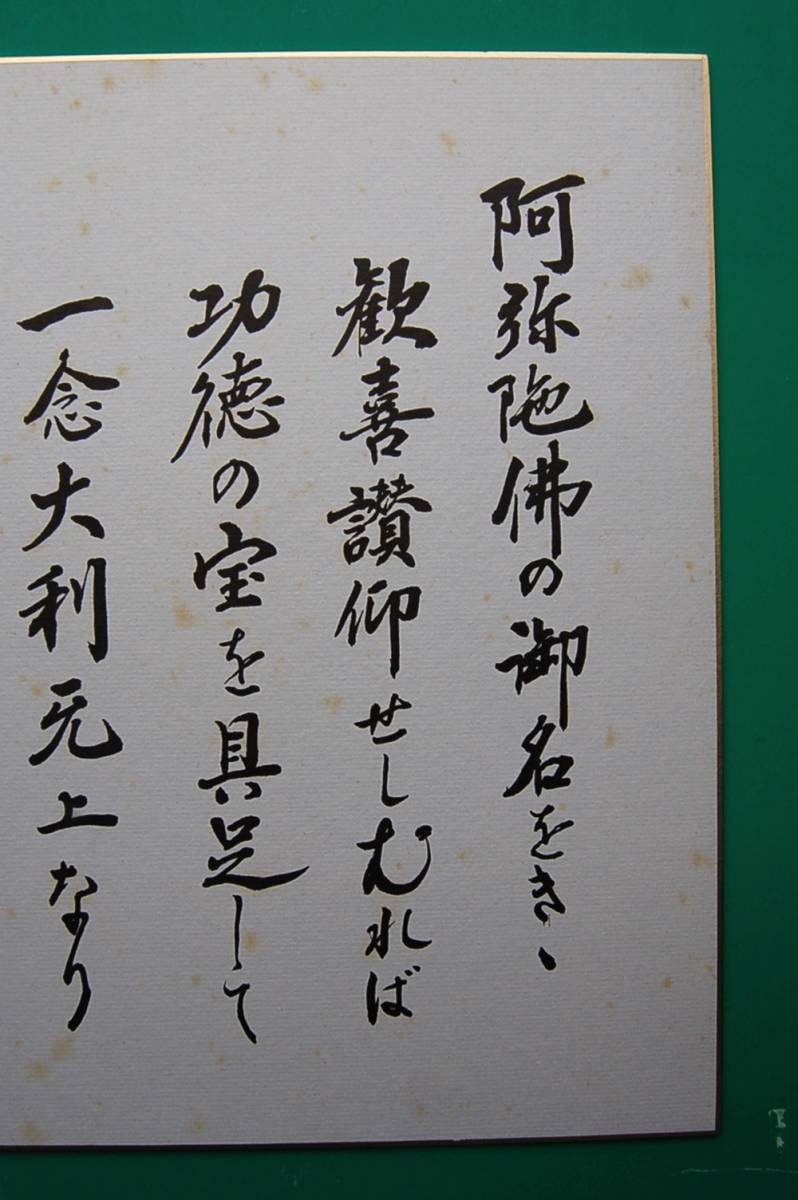 阿弥陁佛の御名をきゝ
歓喜讃仰せしむれば
功徳の宝を具足して
一念大利无上なり